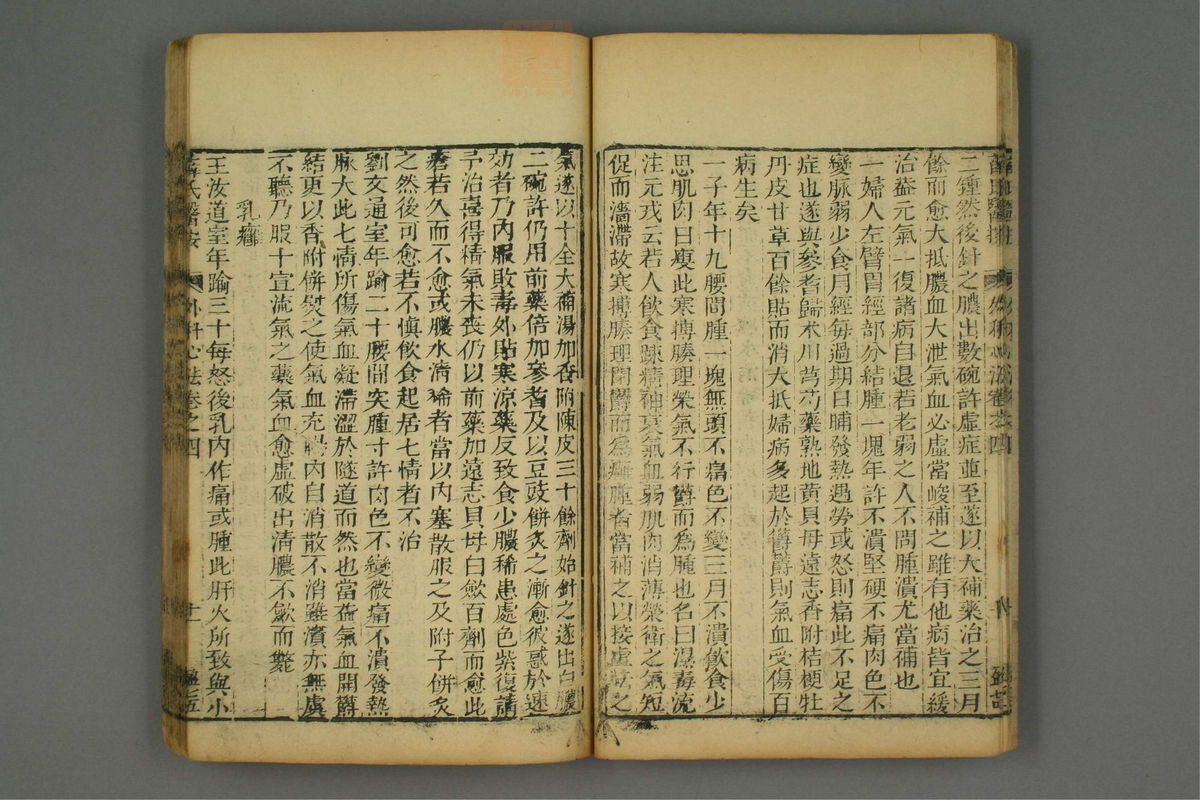 二鍾然後針之膿出數碗許虛症並至遂以大補藥治之三月
餘而愈大抵膿血大泄氣血必虛當峻補之雖有他病皆宜緩
治葢元氣一復諸病自退若老弱之人不問腫潰尤當補也
一婦人左臂胃經部分結腫一塊年許不潰堅硬不痛肉色不
變脉弱少食月經每過期日晡發熱遇勞或怒則痛此不足之
症也遂與參芪歸术川芎芍藥熟地黃貝母遠志香附桔梗牡
丹皮甘草百餘貼而消大抵婦病多起於欝欝則氣血受傷百
病生矣
一子年十九腰間腫一塊無頭不痛色不變三月不潰飲食少
思肌肉日瘦此寒搏腠理榮氣不行欝而爲腫也名曰濕毒流
注元戎云若人飲食踈精神衰氣血弱肌肉消薄榮衛之氣短
促而濇滯故寒搏腠理閉欝而爲癰腫者當補之以接虛 之
氣遂以十全大補湯加香附陳皮三十餘劑始針之遂出白膿
二碗許仍用前藥倍加參芪及以豆豉餅灸之漸愈彼惑於速
効者乃内服敗毒外貼寒涼藥反致食少膿稀患處色紫復請
予治喜得精氣未喪仍以前藥加遠志貝母白歛百劑而愈此
瘡若久而不愈或膿水清稀者當以内塞散服之及附子餅灸
之然後可愈若不慎飲食起居七情者不治
劉文通室年踰二十腰間突腫寸許肉色不變微痛不潰發熱
脉大此七情所傷氣血凝滯澀於隧道而然也當益氣血開欝
結更以香附餅熨之使氣血充暢内自消散不消雖潰亦無虞
不聽乃服十宣流氣之藥氣血愈虛破出清膿不歛而斃
乳癰
王汝道室年踰三十每怒後乳内作痛或腫此肝火所致與小
薛氏醫按 外科心法卷之四 十一